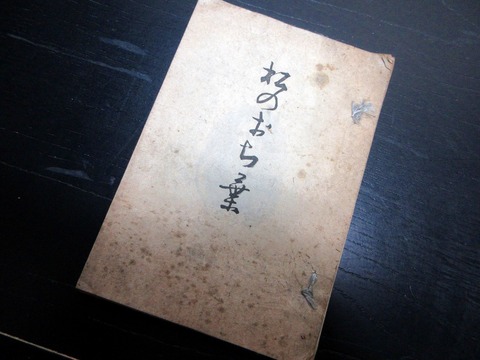 松のおち葉